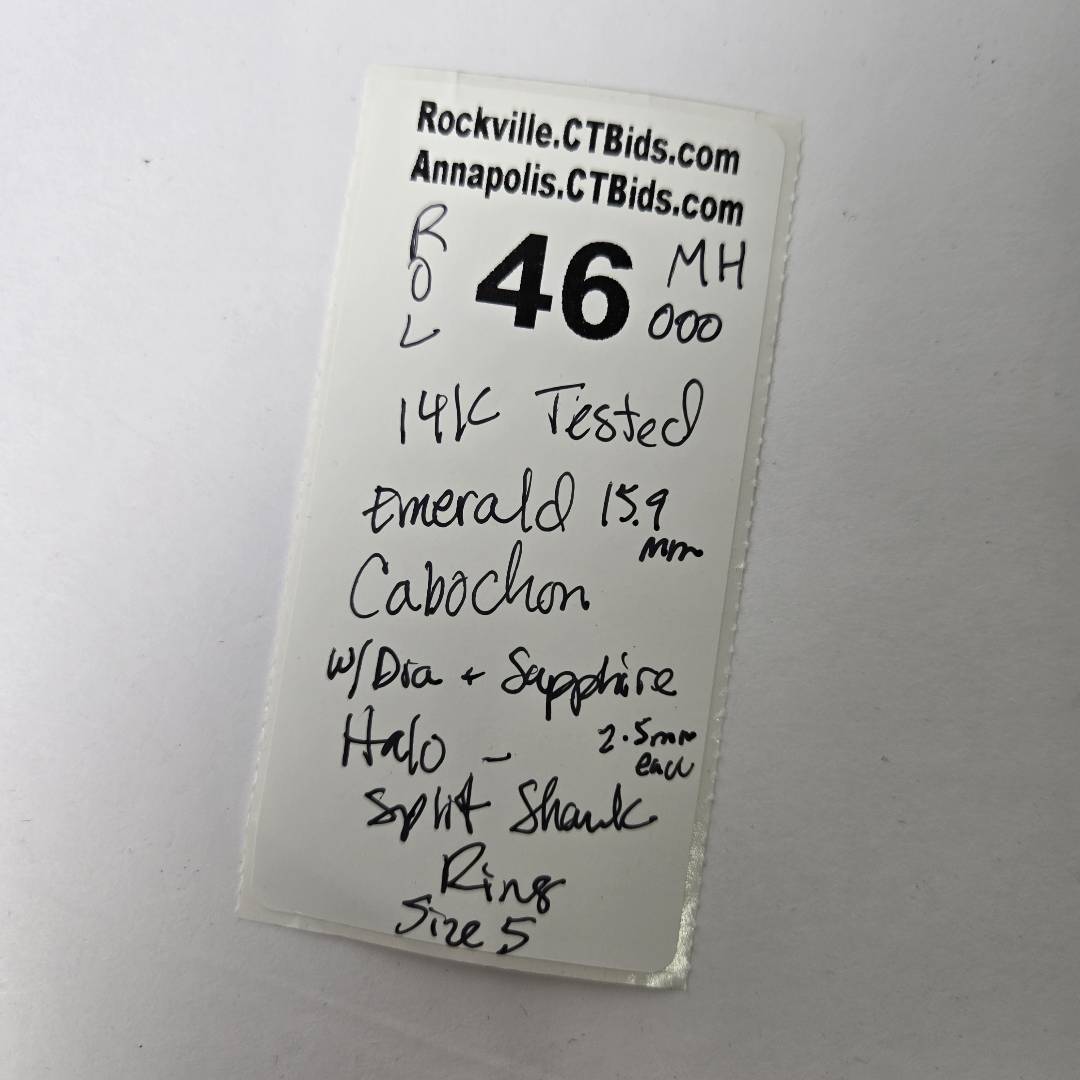 Rockville.CTBids.com
Annapolis.CTBids.com
ROL 46 MH
000
14K Tested
Emerald 15.9
mm
Cabochon
w/Dia + Sapphire
Halo - 2.5mm
each
Split Shank
Ring
Size 5